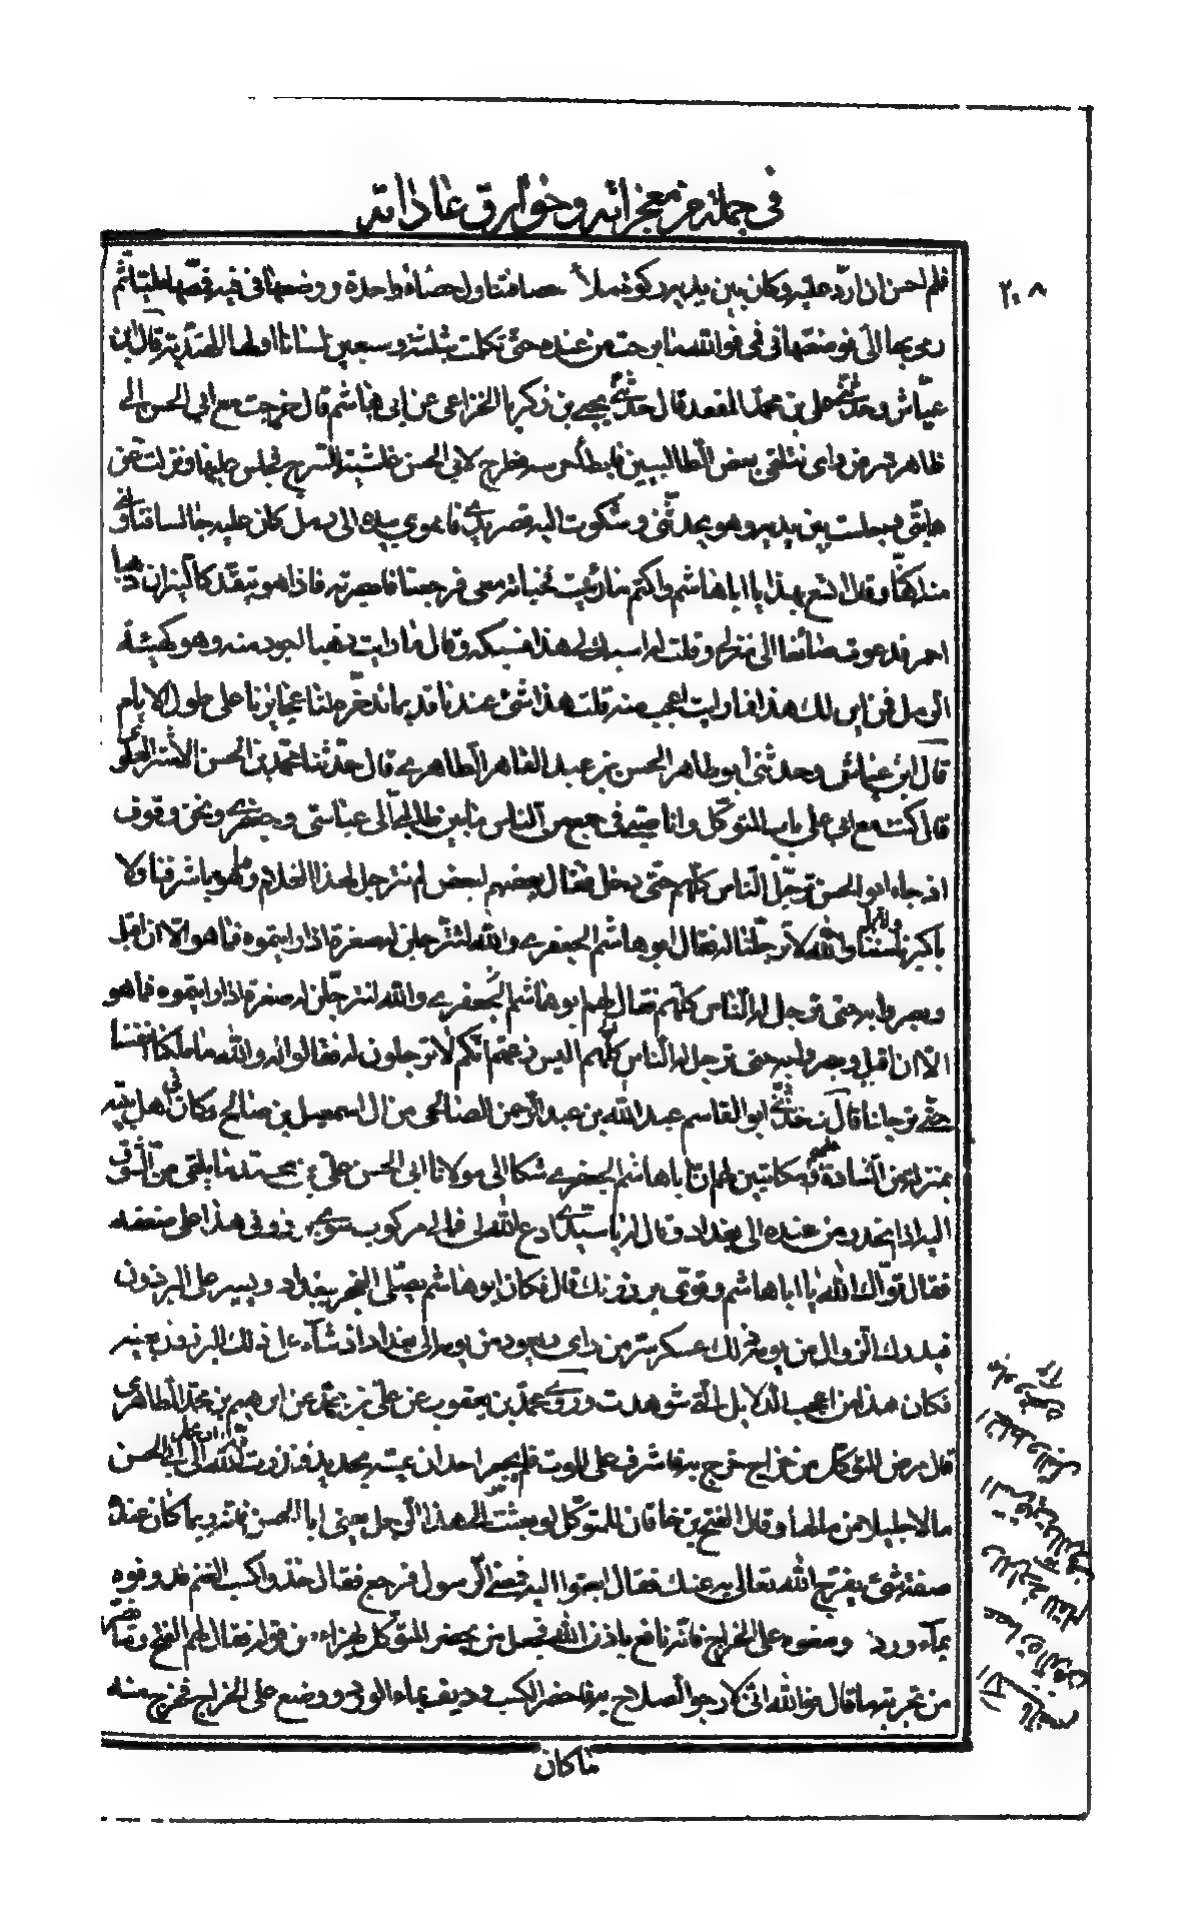 في جملة من معجزاته وخوارق عاداته
٢٠٨
فلم احسن ان ارد عليه وكان بين يديه ركوة ملأ حصا فتناول حصاة واحدة ووضعها في فيه فمصها مليّا ثم
رمى بها الى فوضعتها في فمي فوالله ما برحت من عنده حتى تكلمت بثلثة وسبعين لسانا اولها الهندية قال ابن
عياش وحدثني علي بن محمد المقعد قال حدثني يحيى بن زكريا الخزاعي عن ابي هاشم قال خرجت مع ابي الحسن الى
ظاهر سر من راى نتلقى بعض الطالبيين فابطأ حرسه فطرح لابي الحسن غاشية السرج فجلس عليها ونزلت عن
دابتي وجلست بين يديه وهو يحدثني وشكوت اليه قصر يدي فاهوى بيده الى رمل كان عليه جالسا فناولني
منه كفا وقال اتسع بهذا يا ابا هاشم واكتم ما رأيت فخباته معي فرجعنا فابصرته فاذا هو يتقد كالنيران ذهبا
احمر فدعوت صائغا الى منزلي وقلت له اسبك لي هذا فسبكه وقال ما رايت ذهبا اجود منه وهو كهيئة
الرمل فمن اين لك هذا فما رايت اعجب منه قلت هذا شئ عندنا قديما تدخره لنا عجايزنا على طول الايام
قال ابن عياش وحدثني أبو طاهر الحسن بن عبد القاهر الطاهري قال حدثنا محمد بن الحسن الاشتر العلوي
قال كنت مع ابي على باب المتوكل وانا صبي في جمع من الناس ما بين طالبي الى عباسي وجعفري ونحن وقوف
اذ جاء ابو الحسن ترجل الناس كلهم حتى دخل فقال بعضهم لبعض لم نترجل لهذا الغلام وما هو باشرفنا ولا
باكبرنا سنا والله لا ترجلنا له فقال ابو هاشم الجعفري والله لتترجلن له صغرة اذا رايتموه فما هو الا ان اقبل
وبصروا به حتى ترجل له الناس كلهم فقال لهم ابو هاشم الجعفري والله لتترجلن له صغرة اذا رايتموه فما هو
الا ان اقبل وبصروا به حتى ترجل له الناس كلهم اليس زعمتم انكم لا تترجلون له فقالوا له والله ما ملكنا انفسنا
حتى ترجلنا قال وحدثني ابو القاسم عبد الله بن عبد الرحمن الصالحي من ال اسمعيل بن صالح وكان اهل بيته
بمنزلة من السادة ومكاتبين لهم ان ابا هاشم الجعفري شكا الى مولانا ابي الحسن علي بن محمد ما يلقى من الشوق
اليه اذا انحدر من عنده الى بغداد وقال له يا سيدي ادع الله لي فما لي مركوب سوى برذوني هذا على ضعفه
فقال قواك الله يا ابا هاشم وقوى برذونك قال فكان ابو هاشم يصلي الفجر ببغداد ويسير على البرذون
فيدرك الزوال من يومه ذلك عسكر سر من راى ويعود من يومه الى بغداد اذا شاء على ذلك البرذون بعينه
فكان هذا من اعجب الدلايل التي شوهدت وروى محمد بن يعقوب عن علي بن محمد عن ابرهيم بن محمد الطاهري
قال مرض المتوكل من خراج خرج به فاشرف على الموت فلم يجسر احد ان يمسه بحديدة ونذرت امه ان عوفي ان يحمل الى ابي الحسن
مالا جليلا من مالها وقال الفتح بن خاقان للمتوكل لو بعثت الى هذا الرجل يعني ابا الحسن فانه ربما كان عنده
صفة شئ يفرج الله تعالى به عنك فقال ابعثوا اليه فمضى الرسول فرجع فقال خذوا كسب الغنم فدوفوه
بماء ورد وضعوه على الخراج فانه نافع باذن الله فجعل من يحضر المتوكل يهزأ من قوله فقال لهم الفتح وما يضر
من تجربتها قال فوالله اني لارجو الصلاح به فاحضر الكسب وديف بماء الورد ووضع على الخراج فخرج منه
ما كان